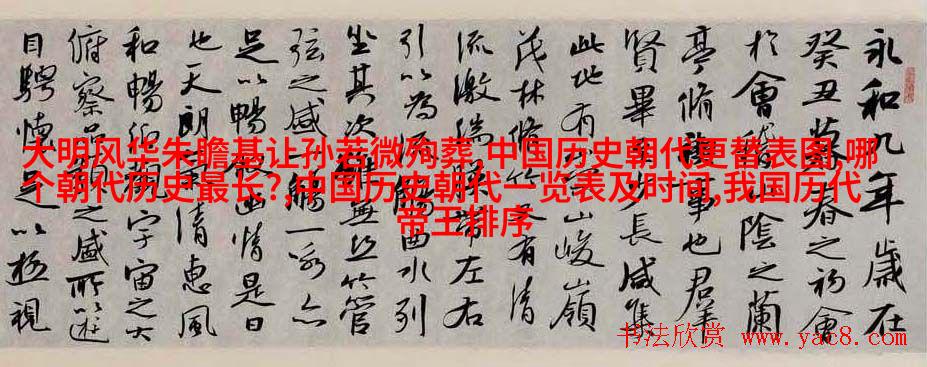 大明风华朱瞻基让孙若微殉葬,中国历史朝代更替表图,哪
个朝代历史最长?,中国历史朝代一览表及时间,我国历代
帝王排序
永和九年歲在
癸丑暮春之初會
於會稽山陰之蘭
亭脩禊事也羣
賢畢至少長咸集
此地有崇山峻嶺
茂林脩竹又有清
流激湍暎帶左右
引以為流觴曲水列
坐其次雖無絲竹管
弦之盛一觴一詠亦
足以暢敘幽情是日
也天朗氣清惠風
和暢仰觀宇宙之大
俯察品類之盛所以遊
目騁懷足以極視
书法欣赏 www.yac8.com